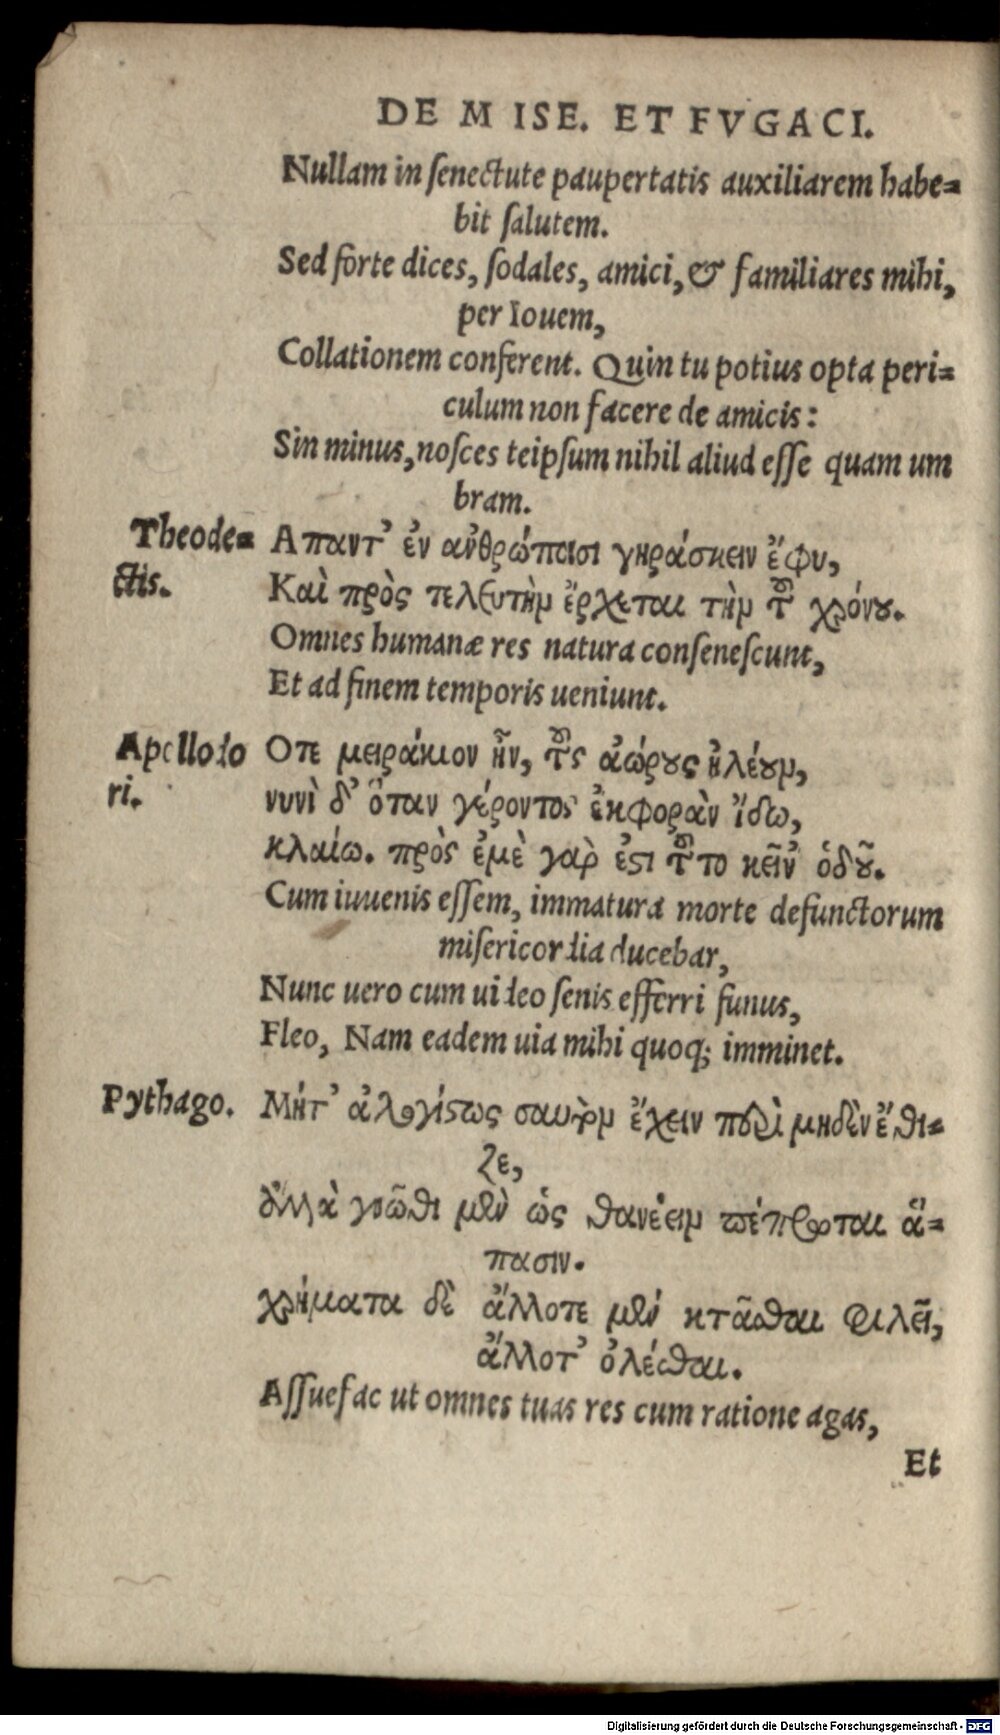 DE MISE. ET FVGACI.
Nullam in ſenectute paupertatis auxiliarem habe=
bit ſalutem.
Sed forte dices, ſodales, amici, & familiares mihi,
per Iouem,
Collationem conferent. Quin tu potius opta peri=
culum non facere de amicis:
Sin minus, noſces teipſum nihil aliud eſſe quam um
bram.
Theode= Απαντ᾽ ἐν ἀνθρώποισι γηράσκειν ἔφυ,
ctis. Καὶ πρὸς τελευτὴν ἔρχεται τὴν τοῦ χρόνου.
Omnes humanæ res natura conſeneſcunt,
Et ad finem temporis ueniunt.
Apollodo Οτε μειράκιον ἦν, τοὺς ἀώρους ἠλέουν,
ri. νυνὶ δ᾽ ὅταν γέροντος ἐκφορὰν ἴδω,
κλαίω. πρὸς ἐμὲ γὰρ ἐστι τοῦτο κεῖν᾽ ὁδοῦ.
Cum iuuenis eſſem, immatura morte defunctorum
miſericordia ducebar,
Nunc uero cum uideo ſenis efferri funus,
Fleo, Nam eadem uia mihi quoq; imminet.
Pythago. Μήτ᾽ ἀλογίστως σαυτὸν ἔχειν περὶ μηδὲν ἔθι=
ζε,
ἀλλὰ γνῶθι μὲν ὡς θανέειν πέπρωται ἅ=
πασιν.
χρήματα δὲ ἄλλοτε μὲν κτᾶσθαι φιλεῖ,
ἄλλοτ᾽ ὀλέσθαι.
Aſſuefac ut omnes tuas res cum ratione agas,
Et
Digitalisierung gefördert durch die Deutsche Forschungsgemeinschaft - DFG